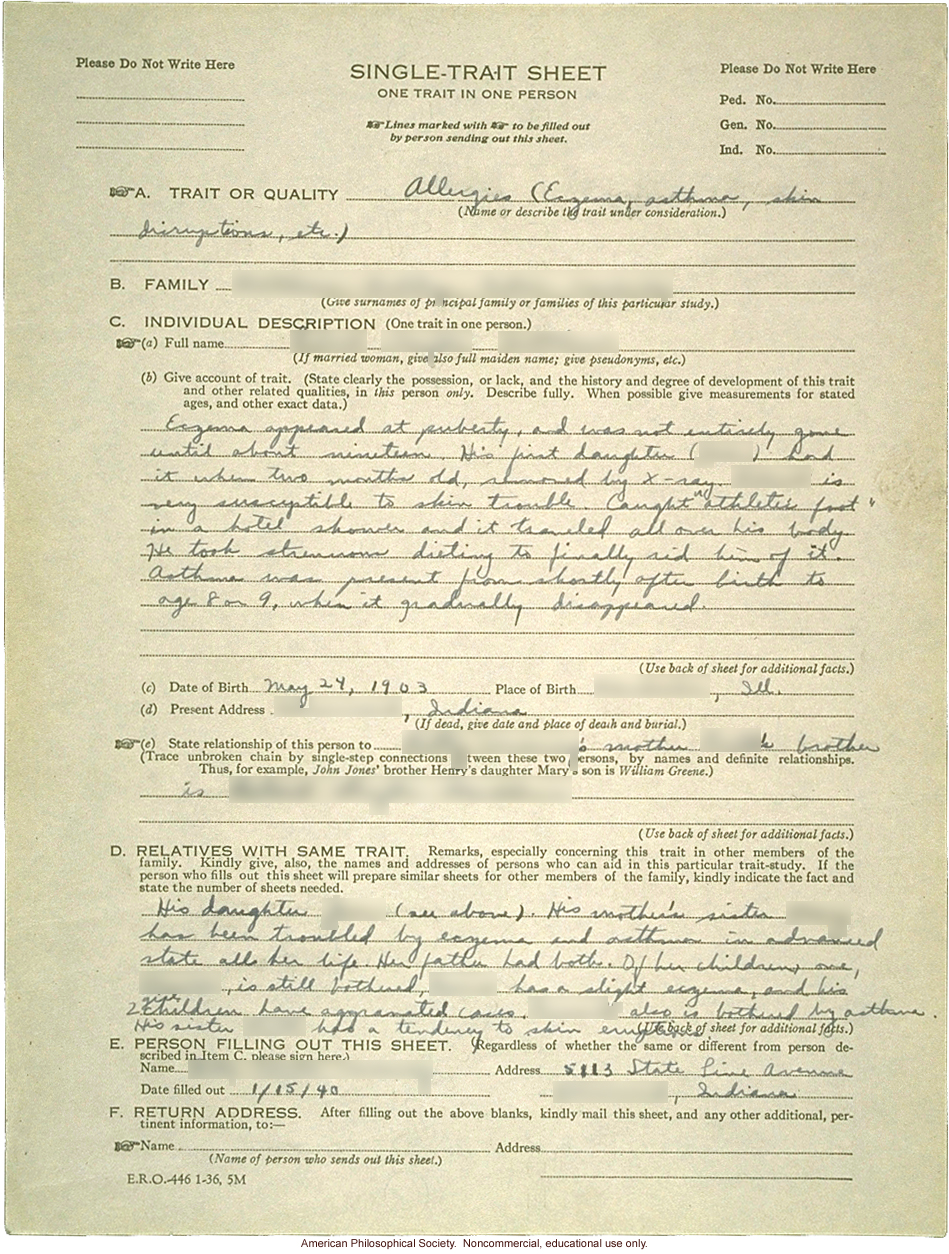 Please Do Not Write Here
SINGLE-TRAIT SHEET
ONE TRAIT IN ONE PERSON
Lines marked with to be filled out
by person sending out this sheet.
Please Do Not Write Here
Ped. No.
Gen. No.
Ind. No.
A. TRAIT OR QUALITY Allergies (Eczema, asthma, skin
(Name or describe the trait under consideration.)
disruptions, etc.)
B. FAMILY
(Give surnames of principal family or families of this particular study.)
C. INDIVIDUAL DESCRIPTION (One trait in one person.)
(a) Full name
(If married woman, give also full maiden name; give pseudonyms, etc.)
(b) Give account of trait. (State clearly the possession, or lack, and the history and degree of development of this trait
and other related qualities, in this person only. Describe fully. When possible give measurements for stated
ages, and other exact data.)
Eczema appeared at puberty, and was not entirely gone
until about nineteen. His first daughter ( ) had
it when two months old, removed by X-ray. is
very susceptible to skin trouble. Caught "athlete's foot"
in a hotel shower and it traveled all over his body.
He took strenuous dieting to finally rid him of it.
Asthma was present from shortly after birth to
age 8 or 9, when it gradually disappeared.
(Use back of sheet for additional facts.)
(c) Date of Birth May 24, 1903 Place of Birth , Ill.
(d) Present Address , Indiana
(If dead, give date and place of death and burial.)
(e) State relationship of this person to 's mother 's brother
(Trace unbroken chain by single-step connections tween these two persons, by names and definite relationships.
Thus, for example, John Jones' brother Henry's daughter Mary's son is William Greene.)
is
(Use back of sheet for additional facts.)
D. RELATIVES WITH SAME TRAIT. Remarks, especially concerning this trait in other members of the
family. Kindly give, also, the names and addresses of persons who can aid in this particular trait-study. If the
person who fills out this sheet will prepare similar sheets for other members of the family, kindly indicate the fact and
state the number of sheets needed.
His daughter (see above). His mother's sister
has been troubled by eczema and asthma in advanced
state all her life. Her father had both. Of her children, one,
, is still bothered, has a slight eczema, and his
2 children have aggravated cases. also is bothered by asthma.
His sister has a tendency to skin eruptions.
(Use back of sheet for additional facts.)
E. PERSON FILLING OUT THIS SHEET. (Regardless of whether the same or different from person de-
scribed in Item C, please sign here.)
Name Address 5113 State Line Avenue
Date filled out 1/15/40 , Indiana
F. RETURN ADDRESS. After filling out the above blanks, kindly mail this sheet, and any other additional, per-
tinent information, to:—
Name Address
(Name of person who sends out this sheet.)
E.R.O.-446 1-36, 5M
American Philosophical Society. Noncommercial, educational use only.